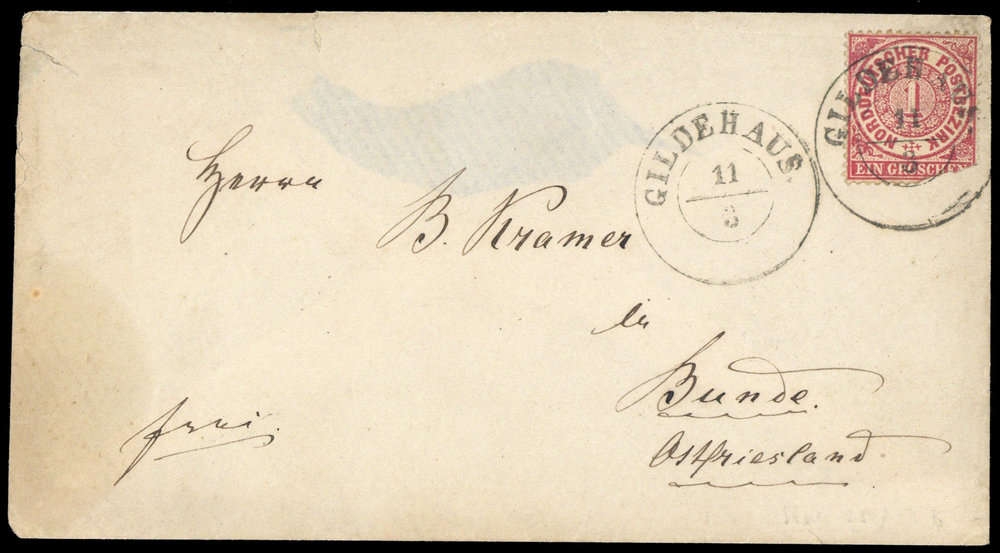 NORDDEUTSCHER POSTBEZIRK
1
EIN GROSCHEN
GILDEHAUS.
11
3
GILDEHAUS.
11
3
Herrn
B. Kramer
in
Bunde.
Ostfriesland
frei.